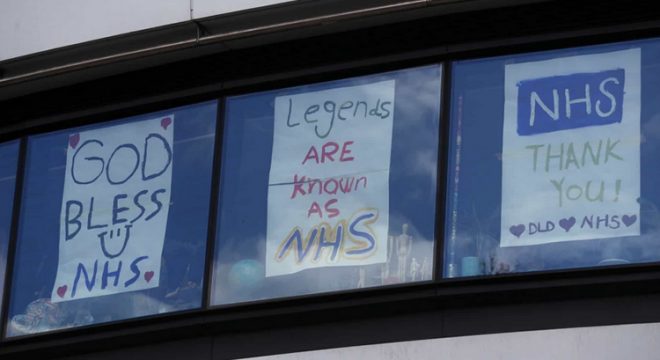 GOD
BLESS
NHS
Legends
ARE
Known
AS
NHS
NHS
THANK
YOU!
DLD NHS